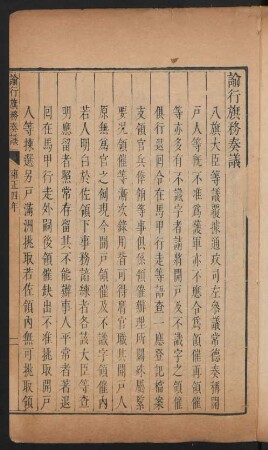 諭行旗務奏議
八旗大臣等議覆據通政司左叅議常德奏稱開
戶人等旣不准爲護軍亦不應令爲領催再領催
等亦多有不識字者請將開戶及不識字之領催
俱行退回令在馬甲行走等語查一應登記檔案
支領官兵俸餉等事俱係領催辦理所關殊屬緊
要况領催等漸次錄用皆可得爲官職其開戶人
原無爲官之例現今開戶領催及不識字領催內
若人明白於佐領下事務諳練合各該大臣等查
明應留者照常存留其不能辦事人平常者著退
回在馬甲行走外嗣後領催缺出不准挑取開戶
人等揀選另戶滿洲挑取若佐領內無可挑取領
諭行旗務奏議
雍正四年
一